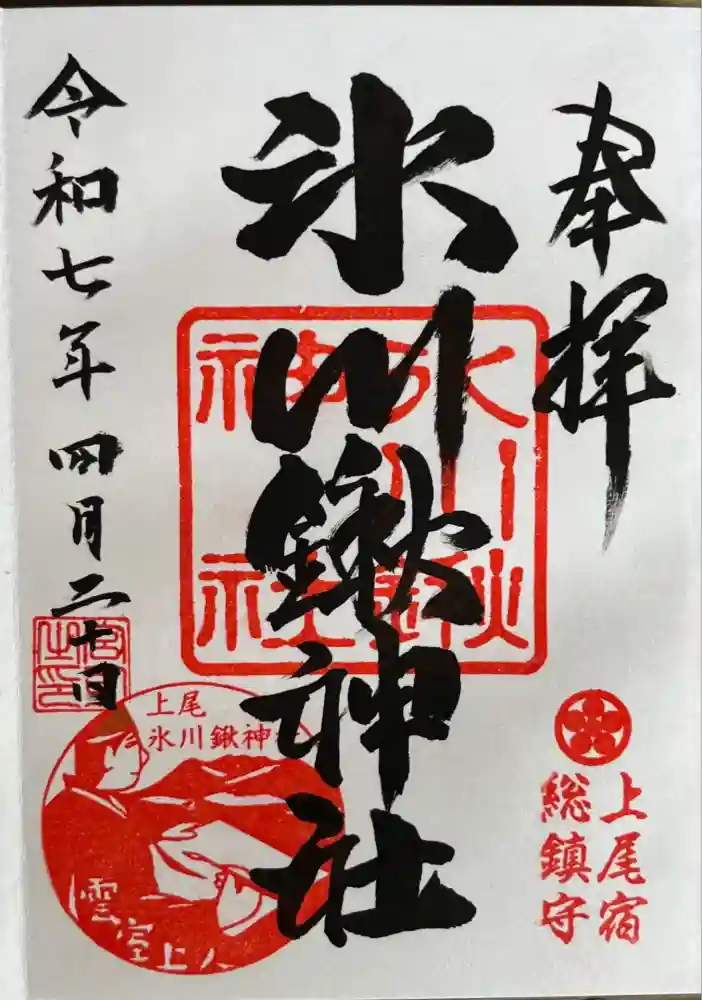 奉拝
上尾宿
総鎮守
氷川鍬神社
氷川鍬
神社
上尾
氷川鍬神社
雲室上人
令和七年四月二十日